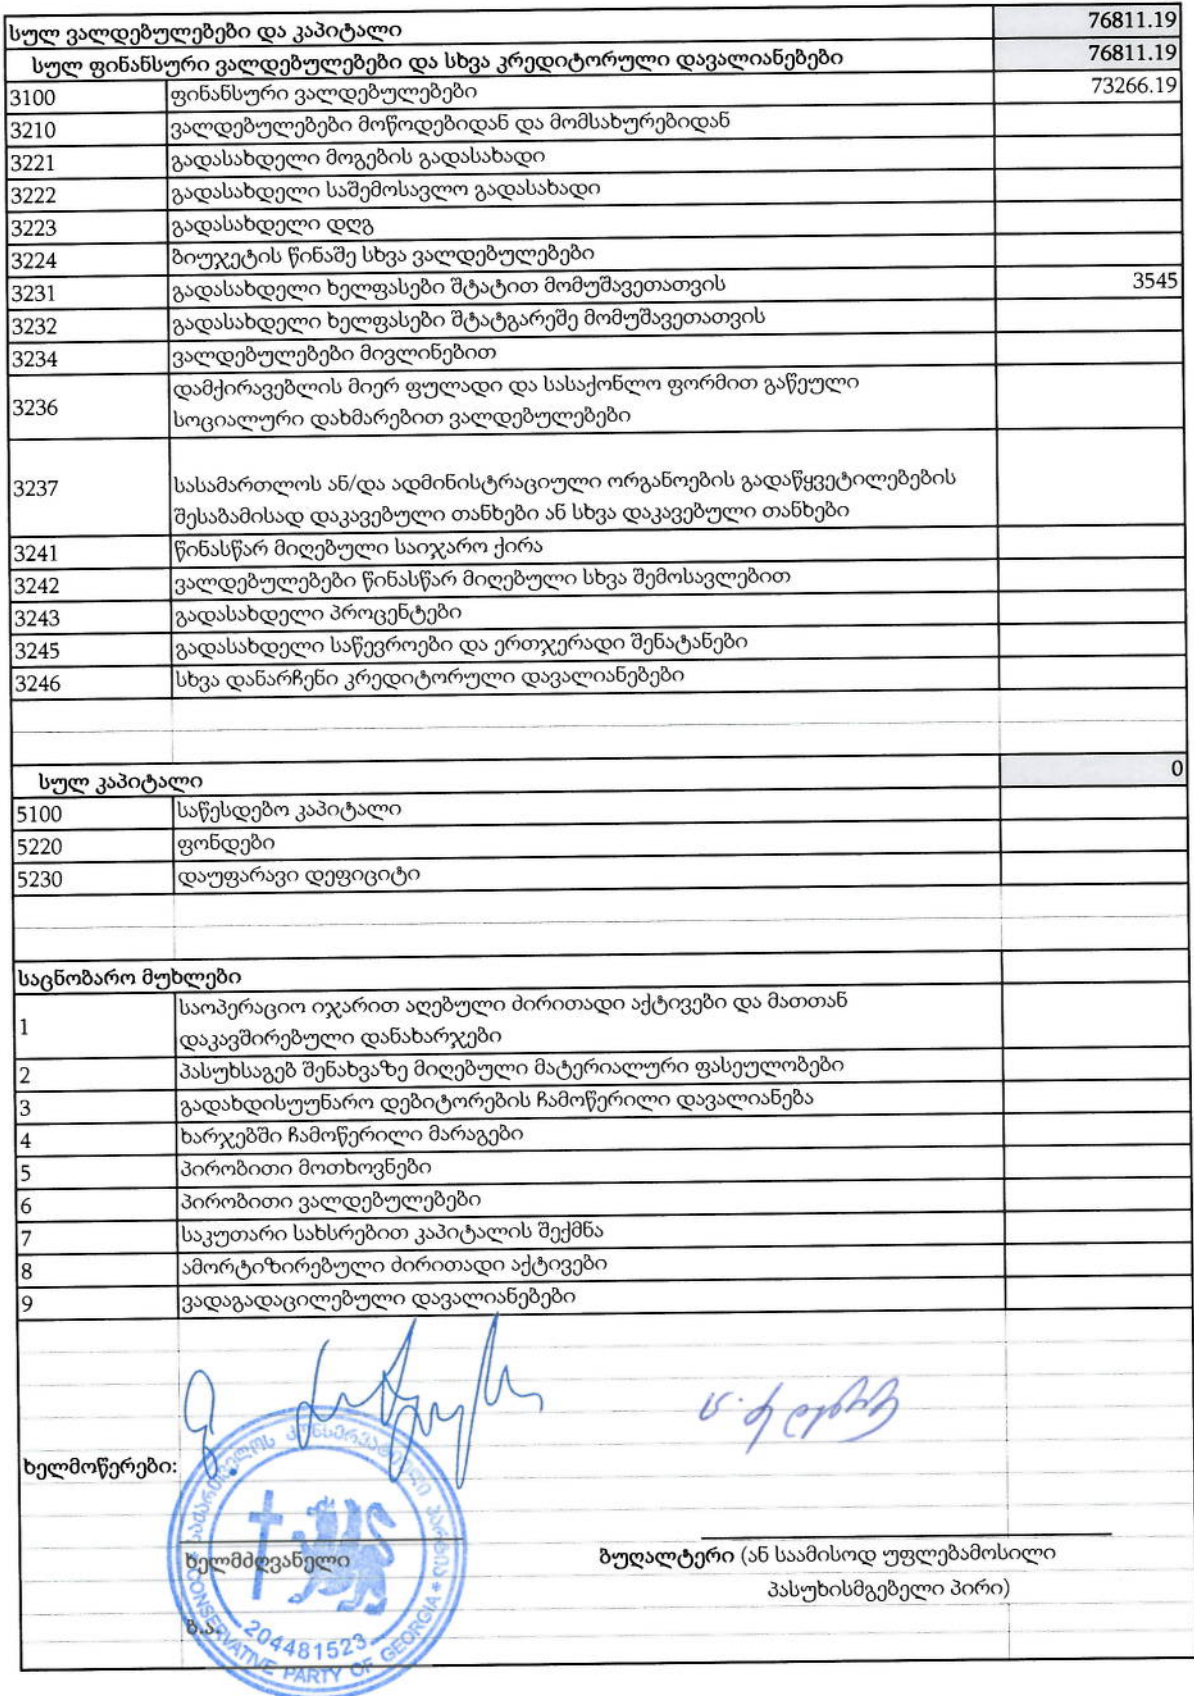 სულ ვალდებულებები და კაპიტალი 76811.19
სულ ფინანსური ვალდებულებები და სხვა კრედიტორული დავალიანებები 76811.19
3100 ფინანსური ვალდებულებები 73266.19
3210 ვალდებულებები მოწოდებიდან და მომსახურებიდან
3221 გადასახდელი მოგების გადასახადი
3222 გადასახდელი საშემოსავლო გადასახადი
3223 გადასახდელი დღგ
3224 ბიუჯეტის წინაშე სხვა ვალდებულებები
3231 გადასახდელი ხელფასები შტატით მომუშავეთათვის 3545
3232 გადასახდელი ხელფასები შტატგარეშე მომუშავეთათვის
3234 ვალდებულებები მივლინებით
3236 დამქირავებლის მიერ ფულადი და სასაქონლო ფორმით გაწეული
სოციალური დახმარებით ვალდებულებები
3237 სასამართლოს ან/და ადმინისტრაციული ორგანოების გადაწყვეტილებების
შესაბამისად დაკავებული თანხები ან სხვა დაკავებული თანხები
3241 წინასწარ მიღებული საიჯარო ქირა
3242 ვალდებულებები წინასწარ მიღებული სხვა შემოსავლებით
3243 გადასახდელი პროცენტები
3245 გადასახდელი საწევროები და ერთჯერადი შენატანები
3246 სხვა დანარჩენი კრედიტორული დავალიანებები
სულ კაპიტალი 0
5100 საწესდებო კაპიტალი
5220 ფონდები
5230 დაუფარავი დეფიციტი
საცნობარო მუხლები
1 საოპერაციო იჯარით აღებული ძირითადი აქტივები და მათთან
დაკავშირებული დანახარჯები
2 პასუხსაგებ შენახვაზე მიღებული მატერიალური ფასეულობები
3 გადახდისუუნარო დებიტორების ჩამოწერილი დავალიანება
4 ხარჯებში ჩამოწერილი მარაგები
5 პირობითი მოთხოვნები
6 პირობითი ვალდებულებები
7 საკუთარი სახსრებით კაპიტალის შექმნა
8 ამორტიზირებული ძირითადი აქტივები
9 ვადაგადაცილებული დავალიანებები
ხელმოწერები:
საქართველოს კონსერვატიული პარტია
ხელმძღვანელი
ბუღალტერი (ან საამისოდ უფლებამოსილი
პასუხისმგებელი პირი)
ბ.ა.
204481523
CONSERVATIVE PARTY OF GEORGIA